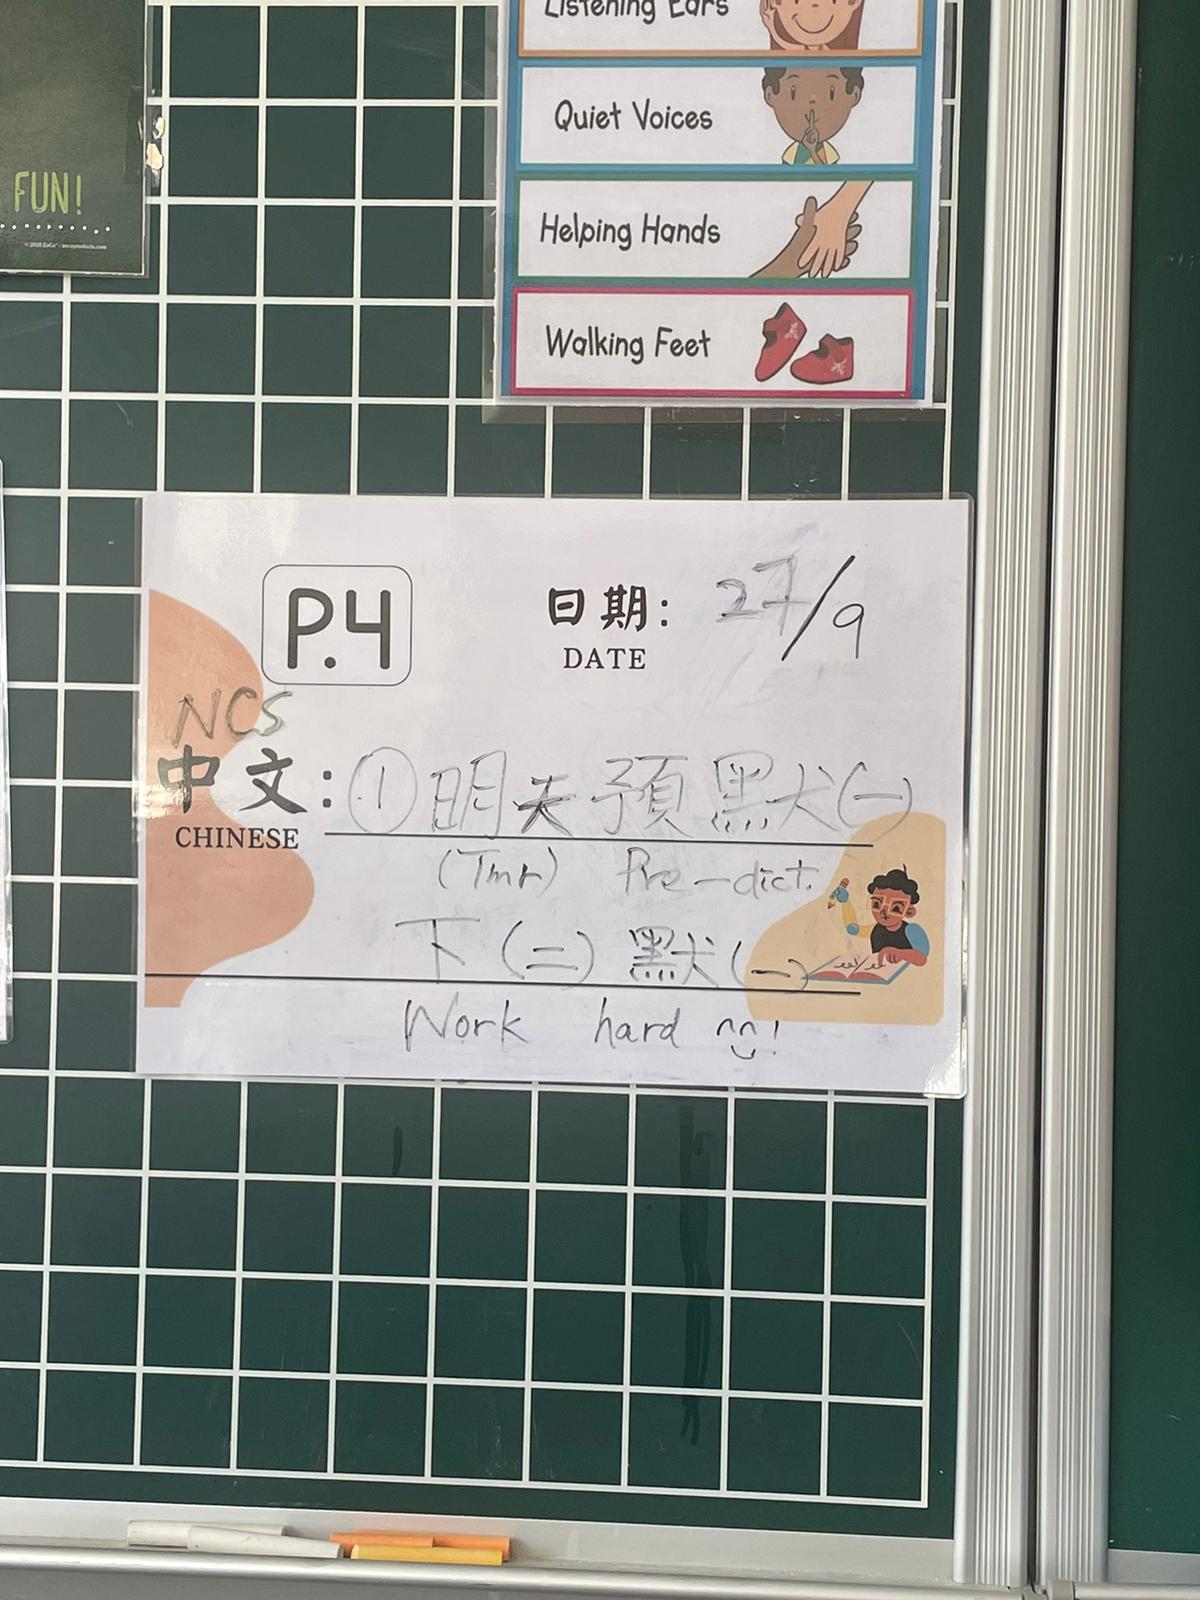 Listening Ears
Quiet Voices
Helping Hands
Walking Feet
FUN!
P.4
日期: 27/9
DATE
NCS
中文: ① 明天預默(一)
CHINESE
(Tmr) Pre-dict.
下(二)默(一)
Work hard !